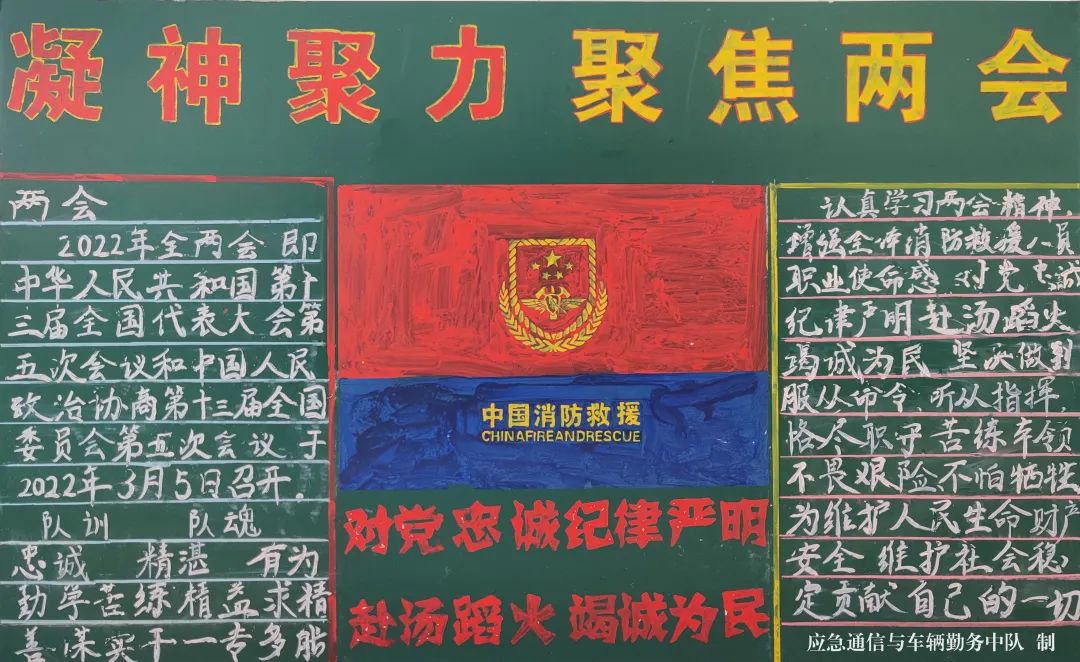 凝神聚力 聚焦两会
两会
2022年全两会即
中华人民共和国第十
三届全国代表大会第
五次会议和中国人民
政治协商第十三届全国
委员会第五次会议于
2022年3月5日召开。
队训 队魂
忠诚 精湛 有为
勤学苦练精益求精
善谋实干一专多能
中国消防救援
CHINAFIREANDRESCUE
对党忠诚纪律严明
赴汤蹈火竭诚为民
认真学习两会精神
增强全体消防救援人员
职业使命感 对党忠诚
纪律严明赴汤蹈火
竭诚为民 坚决做到
服从命令,听从指挥,
恪尽职守苦练本领
不畏艰险不怕牺牲
为维护人民生命财产
安全 维护社会稳
定贡献自己的一切
应急通信与车辆勤务中队 制